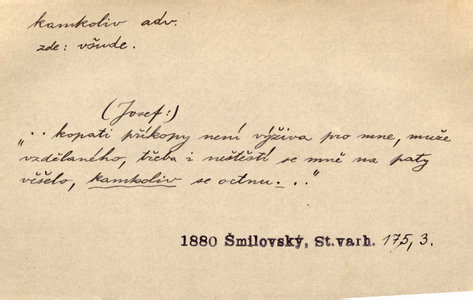 kamkoliv adv.
zde: všude.
(Josef:)
„.. kopati příkopy není výživa pro mne, muže
vzdělaného, třeba i neštěstí se mně na paty
věšelo, kamkoliv se octnu. ..“
1880 Šmilovský, St.varh. 175, 3.